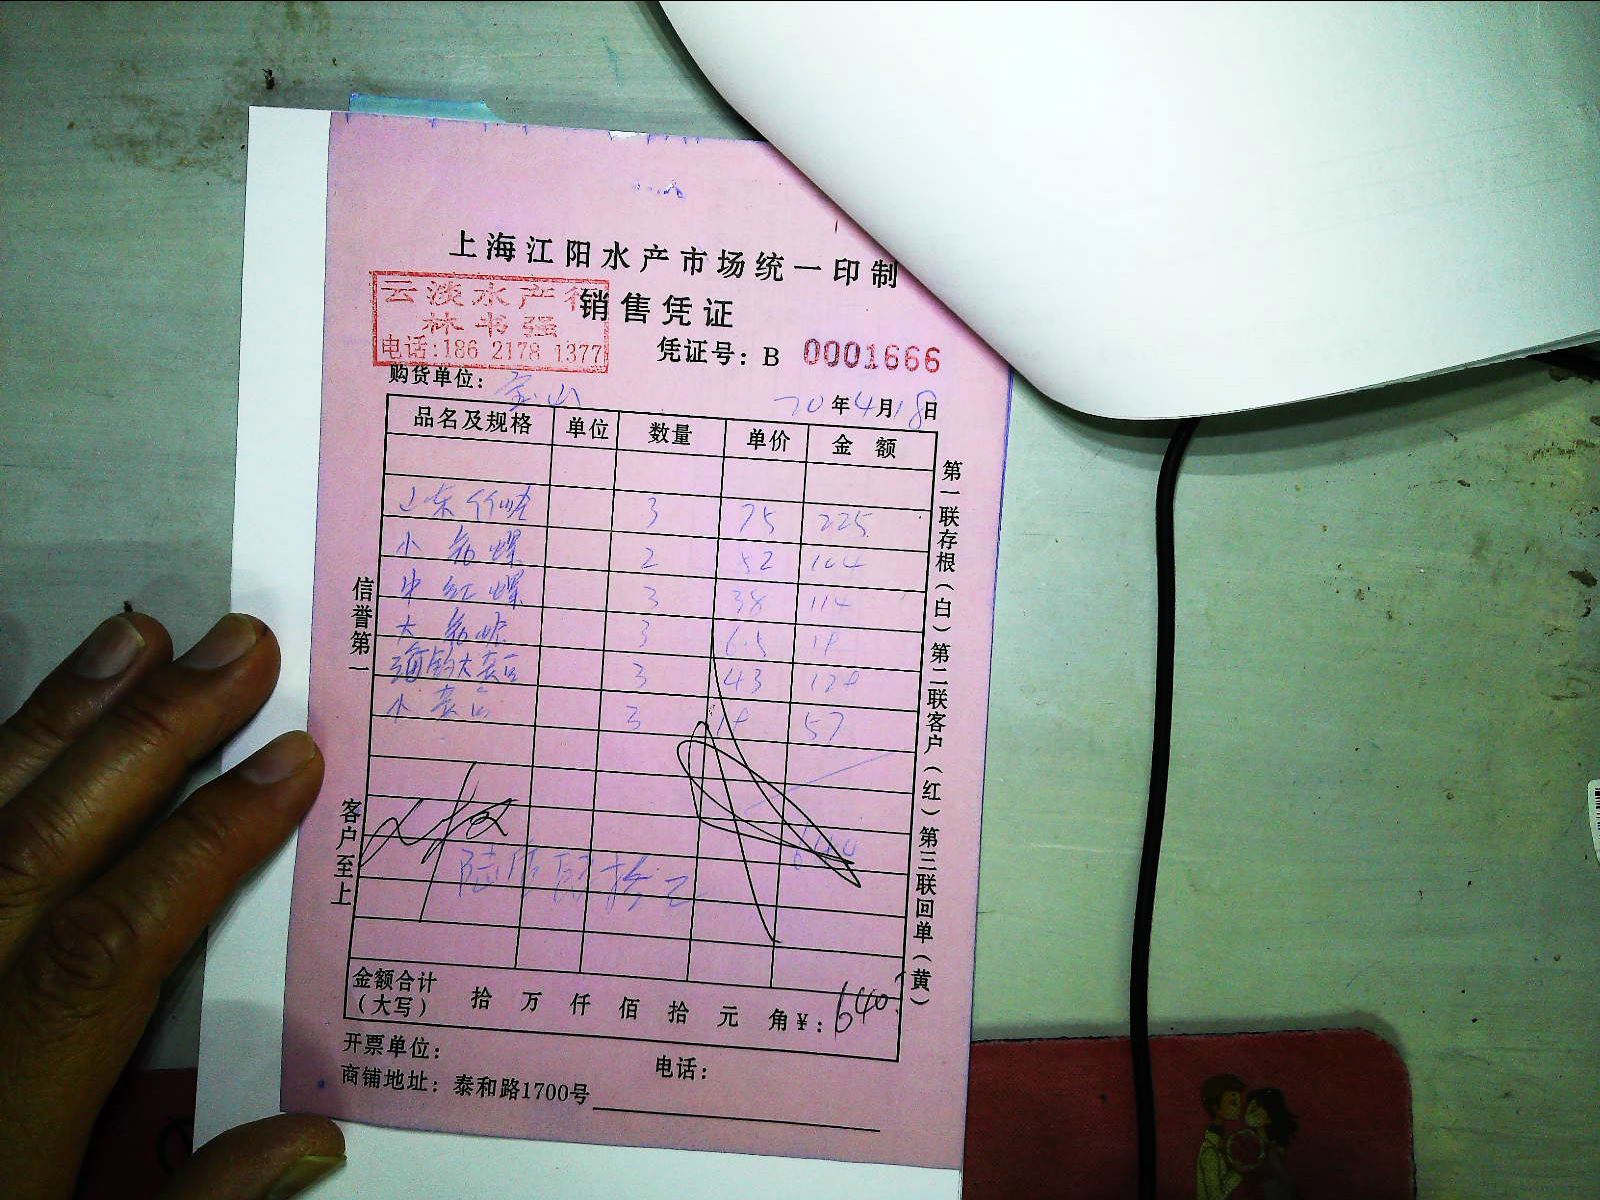 上海江阳水产市场统一印制
云淡水产行
销售凭证
林书强
电话:186 2178 1377
凭证号: B 0001666
购货单位: 宝山
20年4月18日
品名及规格 单位 数量 单价 金额
山东竹蛏 3 75 225
小 螺 2 52 104
中红螺 3 38 114
大 3 6.5 19
海钓大 3 43 129
小 3 19 57
640
陆佰肆拾元
金额合计
(大写) 拾 万 仟 佰 拾 元 角 ¥: 640
开票单位: 电话:
商铺地址: 泰和路1700号
信誉第一
客户至上
第一联存根(白)第二联客户(红)第三联回单(黄)